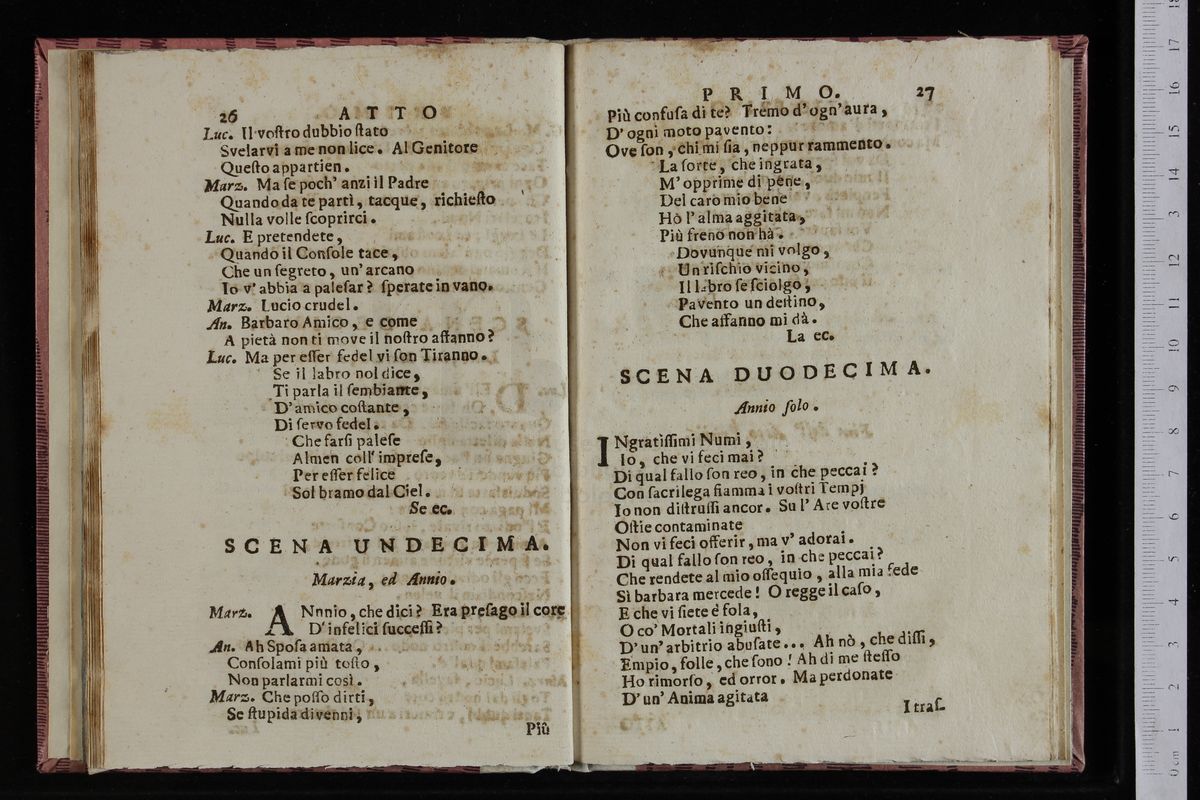 26 ATTO
Luc. Il voſtro dubbio ſtato
Svelarvi a me non lice. Al Genitore
Queſto appartien.
Marz. Ma ſe poch' anzi il Padre
Quando da te partì, tacque, richieſto
Nulla volle ſcoprirci.
Luc. E pretendete,
Quando il Conſole tace,
Che un ſegreto, un' arcano
Io v' abbia a paleſar? ſperate in vano.
Marz. Lucio crudel.
An. Barbaro Amico, e come
A pietà non ti move il noſtro affanno?
Luc. Ma per eſſer fedel vi ſon Tiranno.
Se il labro nol dice,
Ti parla il ſembiante,
D' amico coſtante,
Di ſervo fedel.
Che farſi paleſe
Almen coll' impreſe,
Per eſſer felice
Sol bramo dal Ciel.
Se ec.
SCENA UNDECIMA.
Marzia, ed Annio.
Marz. ANnnio, che dici? Era preſago il core
D' infelici ſucceſſi?
An. Ah Spoſa amata,
Conſolami più toſto,
Non parlarmi così.
Marz. Che poſſo dirti,
Se ſtupida divenni,
Più
PRIMO. 27
Più confuſa di te? Tremo d' ogn' aura,
D' ogni moto pavento:
Ove ſon, chi mi ſia, neppur rammento.
La ſorte, che ingrata,
M' opprime di pene,
Del caro mio bene
Hò l' alma aggitata,
Più freno non hà.
Dovunque mi volgo,
Un riſchio vicino,
Il labro ſe ſciolgo,
Pavento un deſtino,
Che affanno mi dà.
La ec.
SCENA DUODECIMA.
Annio ſolo.
INgratiſſimi Numi,
Io, che vi feci mai?
Di qual fallo ſon reo, in che peccai?
Con ſacrilega fiamma i voſtri Tempj
Io non diſtruſſi ancor. Su l' Are voſtre
Oſtie contaminate
Non vi feci offerir, ma v' adorai.
Di qual fallo ſon reo, in che peccai?
Che rendete al mio oſſequio, alla mia fede
Sì barbara mercede! O regge il caſo,
E che vi ſiete è fola,
O co' Mortali ingiuſti,
D' un' arbitrio abuſate... Ah nò, che diſſi,
Empio, folle, che ſono! Ah di me ſteſſo
Ho rimorſo, ed orror. Ma perdonate
D' un' Anima agitata
I traſ-